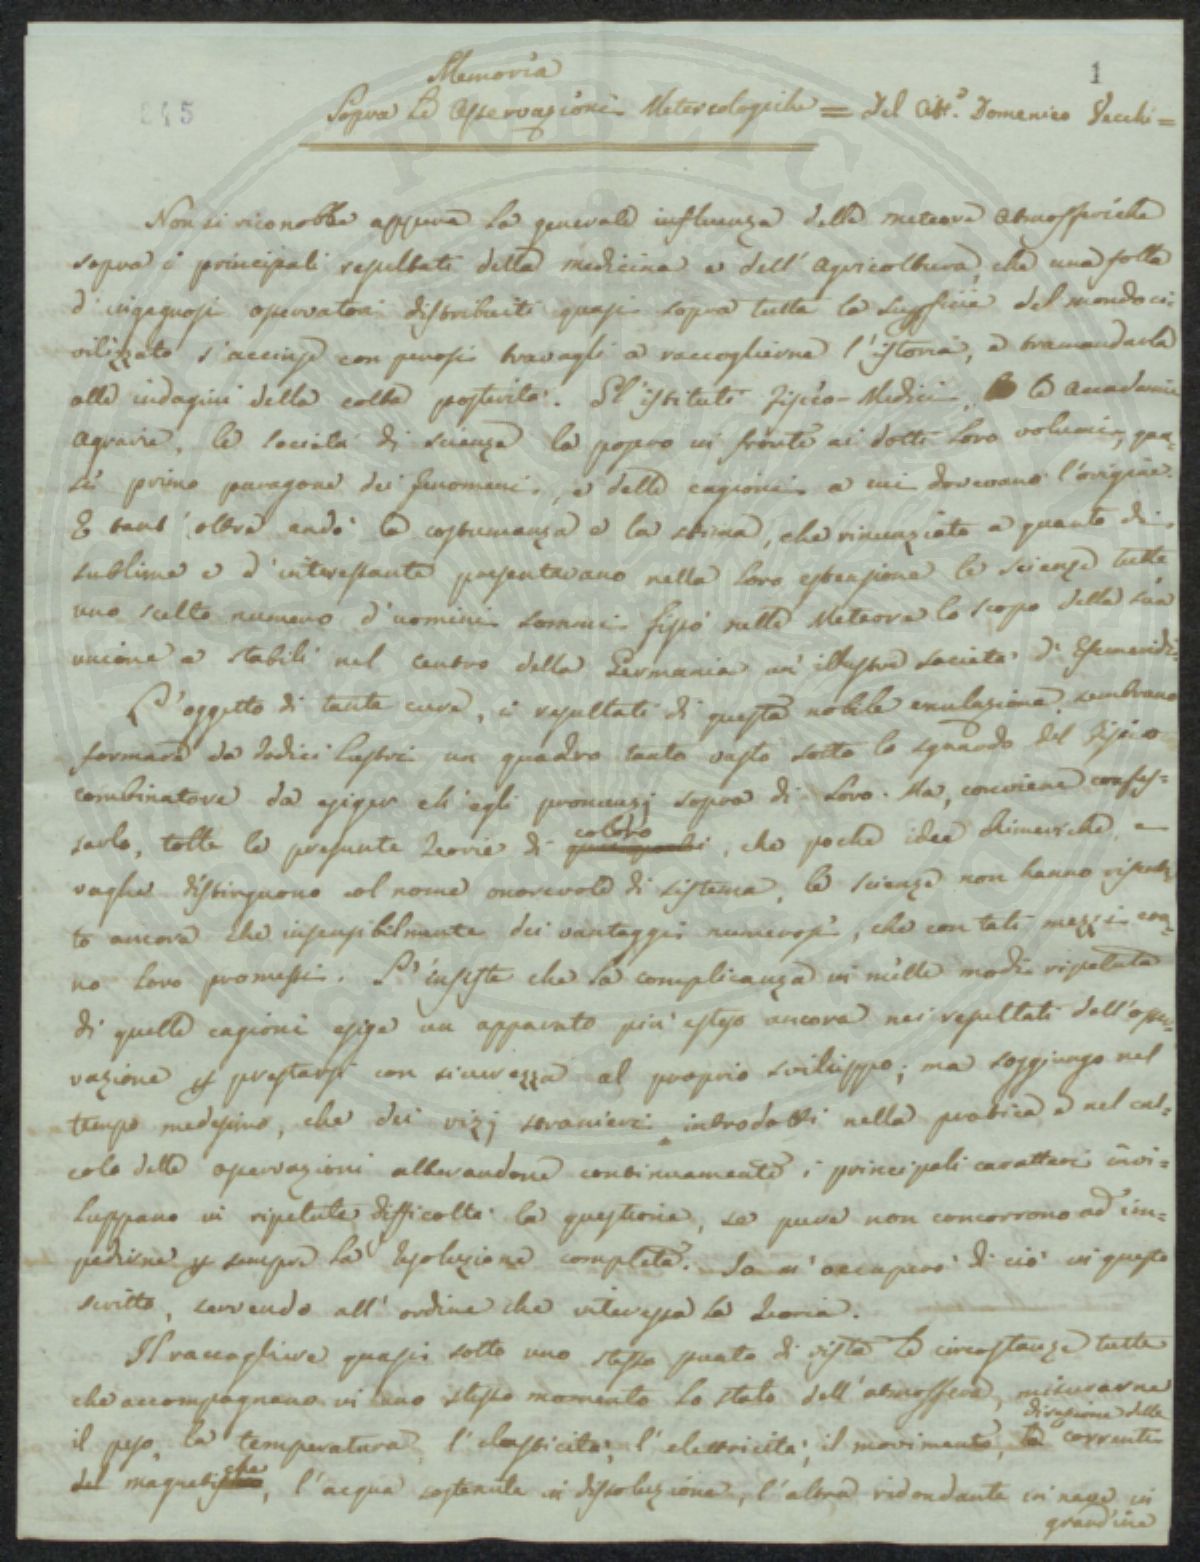 1
245
Memoria
Sopra Le Osservazioni Metereologiche = Del Citt.º Domenico Vecchi =
Non si riconobbe appena la generale influenza delle meteore atmosferiche
sopra i principali resultati della medicina e dell'agricoltura, che una folla
d'ingegnosi osservatori distribuiti quasi sopra tutta la superficie del mondo ci-
vilizzato s'accinse con penosi travagli a raccoglierne l'istoria, e tramandarla
alle indagini della colta posterità. Gl'istituti Fisico-Medici, le accademie
agrarie, le società di scienze la posero in fronte ai dotti loro volumi, qua-
si primo paragone dei fenomeni, e delle cagioni a cui dovevano l'origine.
E tant'oltre andò la costumanza e la stima, che rinunziato a quanto di
sublime e d'interessante presentavano nella loro estensione le scienze tutte
uno scelto numero d'uomini sommi fissò nelle Meteore lo scopo della sua
unione e stabilì nel centro della Germania un'illustre società di Efemeridi.
L'oggetto di tante cure, i resultati di questa nobile emulazione sembrano
formare da dodici lustri un quadro tanto vasto sotto lo sguardo del Fisico
combinatore da esiger ch'egli pronunzj sopra di loro. Ma, conviene confes-
sarlo, tolte le presunte Teorie di coloro, che poche idee chimeriche, e
vaghe distinguono col nome onorevole di sistema, le scienze non hanno risenti-
to ancora che insensibilmente dei vantaggi numerosi, che con tali mezzi era-
no loro promessi. S'insiste che la complicanza in mille modi ripetuta
di quelle cagioni esige un apparato più esteso ancora nei resultati dell'osser-
vazione prestarsi con sicurezza al proprio sviluppo; ma soggiungo nel
tempo medesimo, che dei vizj stranieri introdotti nella pratica e nel cal-
colo delle osservazioni alterandone continuamente i principali caratteri invi-
luppano in ripetute difficoltà la questione, se pure non concorrono ad im-
pedirne sempre la risoluzione completa. Io m'occuperò di ciò in questo
scritto, servendo all'ordine che interessa la Teoria.
Il raccogliere quasi sotto uno stesso punto di vista le circostanze tutte
che accompagnano in uno stesso momento lo stato dell'atmosfera, misurarne
il peso, la temperatura, l'elasticità, l'elettricità, il movimento, la direzione delle correnti
del magnetis, l'acqua sostenuta in dissoluzione, l'altra ridondante in neve in
grandine